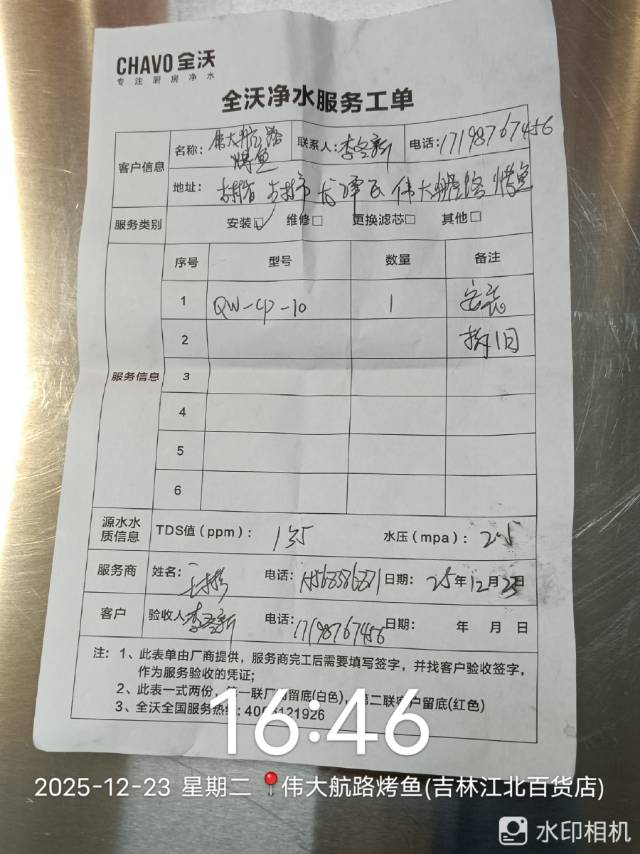 CHAVO 全沃
专注厨房净水
全沃净水服务工单
客户信息 名称：伟大航路烤鱼 联系人： 电话：17198767456
地址： 吉林市 伟大航路 烤鱼
服务类别 安装☑ 维修□ 更换滤芯□ 其他□
服务信息 序号 型号 数量 备注
1 1 安装
2 拆旧
3
4
5
6
源水水质信息 TDS值（ppm）：135 水压（mpa）：
服务商 姓名： 电话： 日期：25年12月23日
客户 验收人 电话：17198767456 日期： 年 月 日
注：1、此表单由厂商提供，服务商完工后需要填写签字，并找客户验收签字，
作为服务验收的凭证；
2、此表一式两份，第一联厂商留底(白色)，第二联客户留底(红色)
3、全沃全国服务热线：
16:46
2025-12-23 星期二 伟大航路烤鱼(吉林江北百货店)
水印相机